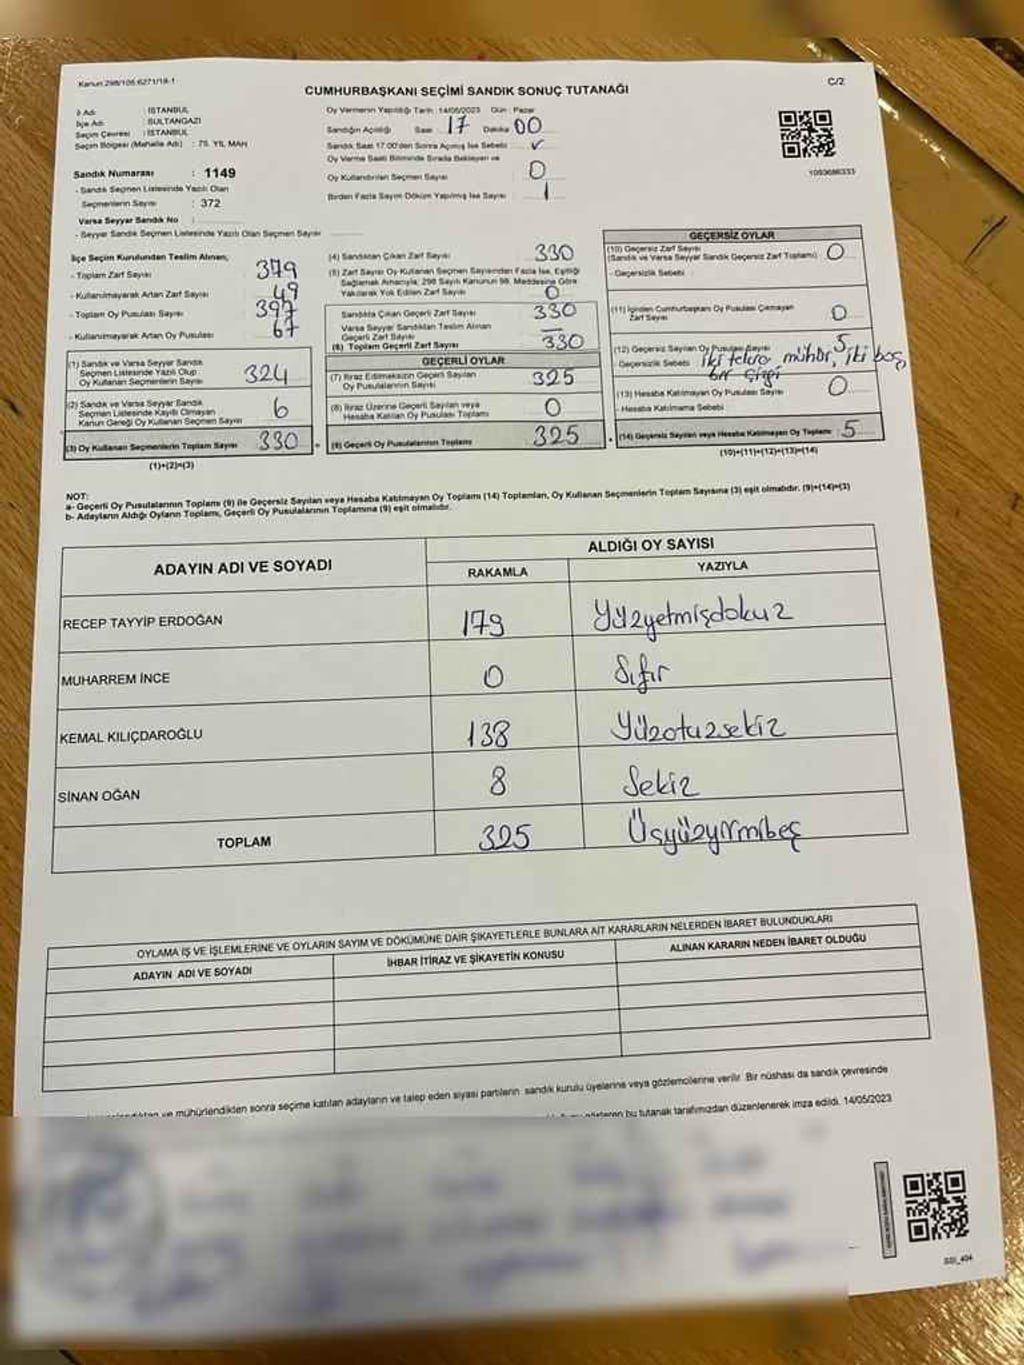 Kanun:298/105 6271/19-1
C/2
CUMHURBAŞKANI SEÇİMİ SANDIK SONUÇ TUTANAĞI
İl Adı : İSTANBUL
İlçe Adı : SULTANGAZİ
Seçim Çevresi : İSTANBUL
Seçim Bölgesi (Mahalle Adı) : 75. YIL MAH
Sandık Numarası : 1149
- Sandık Seçmen Listesinde Yazılı Olan
Seçmenlerin Sayısı : 372
Varsa Seyyar Sandık No :
- Seyyar Sandık Seçmen Listesinde Yazılı Olan Seçmen Sayısı
Oy Vermenin Yapıldığı Tarih :14/05/2023 Gün : Pazar
Sandığın Açıldığı Saat 17 Dakika 00
Sandık Saat 17.00'den Sonra Açılmış İse Sebebi ✓
Oy Verme Saati Bitiminde Sırada Bekleyen ve
Oy Kullandırılan Seçmen Sayısı 0
Birden Fazla Sayım Döküm Yapılmış İse Sayısı 1
1093686333
İlçe Seçim Kurulundan Teslim Alınan;
- Toplam Zarf Sayısı 379
- Kullanılmayarak Artan Zarf Sayısı 49
- Toplam Oy Pusulası Sayısı 397
- Kullanılmayarak Artan Oy Pusulası 67
(1) Sandık ve Varsa Seyyar Sandık
Seçmen Listesinde Yazılı Olup
Oy Kullanan Seçmenlerin Sayısı 324
(2) Sandık ve Varsa Seyyar Sandık
Seçmen Listesinde Kayıtlı Olmayan
Kanun Gereği Oy Kullanan Seçmen Sayısı 6
(3) Oy Kullanan Seçmenlerin Toplam Sayısı 330
(1)+(2)=(3)
(4) Sandıktan Çıkan Zarf Sayısı 330
(5) Zarf Sayısı Oy Kullanan Seçmen Sayısından Fazla İse, Eşitliği
Sağlamak Amacıyla; 298 Sayılı Kanunun 98. Maddesine Göre
Yakılarak Yok Edilen Zarf Sayısı 0
Sandıkta Çıkan Geçerli Zarf Sayısı 330
Varsa Seyyar Sandıktan Teslim Alınan
Geçerli Zarf Sayısı —
(6) Toplam Geçerli Zarf Sayısı 330
GEÇERLİ OYLAR
(7) İtiraz Edilmeksizin Geçerli Sayılan
Oy Pusulalarının Sayısı 325
(8) İtiraz Üzerine Geçerli Sayılan veya
Hesaba Katılan Oy Pusulası Toplamı 0
(9) Geçerli Oy Pusulalarının Toplamı 325
GEÇERSİZ OYLAR
(10) Geçersiz Zarf Sayısı
(Sandık ve Varsa Seyyar Sandık Geçersiz Zarf Toplamı) 0
- Geçersizlik Sebebi
(11) İçinden Cumhurbaşkanı Oy Pusulası Çıkmayan
Zarf Sayısı 0
(12) Geçersiz Sayılan Oy Pusulası Sayısı 5
- Geçersizlik Sebebi iki tekra mühür, iki boş,
bir çizgi
(13) Hesaba Katılmayan Oy Pusulası Sayısı 0
- Hesaba Katılmama Sebebi
(14) Geçersiz Sayılan veya Hesaba Katılmayan Oy Toplamı 5
(10)+(11)+(12)+(13)=(14)
NOT:
a- Geçerli Oy Pusulalarının Toplamı (9) ile Geçersiz Sayılan veya Hesaba Katılmayan Oy Toplamı (14) Toplamları, Oy Kullanan Seçmenlerin Toplam Sayısına (3) eşit olmalıdır. (9)+(14)=(3)
b- Adayların Aldığı Oyların Toplamı, Geçerli Oy Pusulalarının Toplamına (9) eşit olmalıdır.
ADAYIN ADI VE SOYADI
ALDIĞI OY SAYISI
RAKAMLA YAZIYLA
RECEP TAYYİP ERDOĞAN 179 Yüzyetmişdokuz
MUHARREM İNCE 0 Sıfır
KEMAL KILIÇDAROĞLU 138 Yüzotuzsekiz
SİNAN OĞAN 8 Sekiz
TOPLAM 325 Üçyüzyirmibeş
OYLAMA İŞ VE İŞLEMLERİNE VE OYLARIN SAYIM VE DÖKÜMÜNE DAİR ŞİKAYETLERLE BUNLARA AİT KARARLARIN NELERDEN İBARET BULUNDUKLARI
ADAYIN ADI VE SOYADI İHBAR İTİRAZ VE ŞİKAYETİN KONUSU ALINAN KARARIN NEDEN İBARET OLDUĞU
ve mühürlendikten sonra seçime katılan adayların ve talep eden siyasi partilerin sandık kurulu üyelerine veya gözlemcilerine verilir. Bir nüshası da sandık çevresinde
bu tutanak tarafımızdan düzenlenerek imza edildi. 14/05/2023
SSI_404